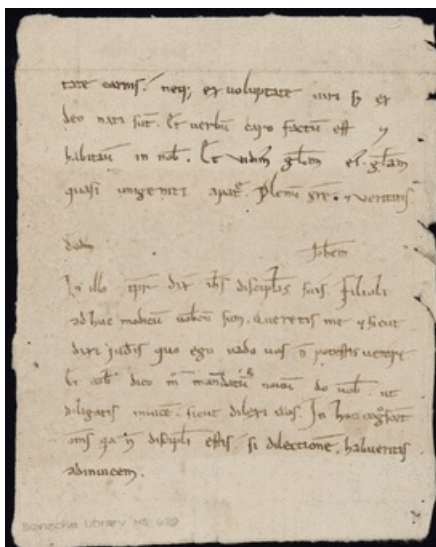 tate carnis. neq; ex voluptate viri sz ex
deo nati sūt. Et verbū caro factū est ⁊
habitaū in nob̄. Et vidim̄ gl̄am ei. gl̄am
quasi unigeniti apat̄. Plenū gr̄e. ⁊ veritatis
Joh̄em
In illo tp̄r dix̄ ih̄s discipl̄is suis. filioli
ad huc modicū vobcū sum. Queretis me ⁊ sicut
dixi judeis quo ego vado vos n̄ potestis venire
dico m̄ mandatū novū do vob̄. ut
diligatis invicē. sicut dilexi vos. In hoc cog̊scēt
om̄s qa discipli estis. si dilectionē. habueritis
adinvicem.
Beinecke Library MS